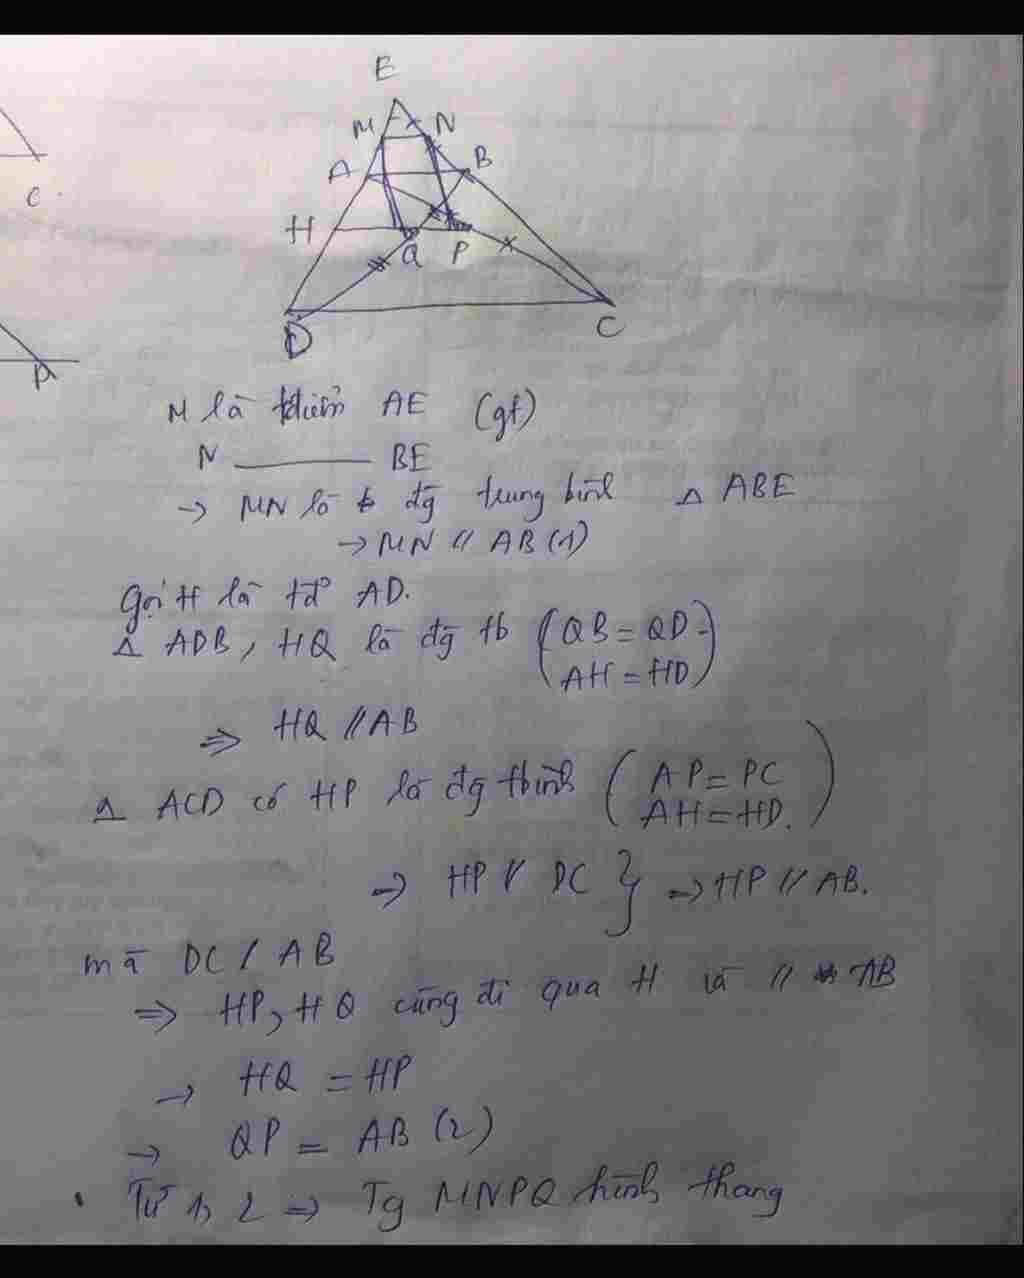 E
M N
A B
C
H
Q P
D C
P
M là điểm AE (gt)
N ——— BE
→ MN là đg trung bình Δ ABE
→ MN // AB (1)
Gọi H là tđ AD.
Δ ADB, HQ là đg tb (QB = QD
AH = HD)
⇒ HQ // AB
Δ ACD có HP là đg tbình (AP = PC
AH = HD.)
⇒ HP // DC } ⇒ HP // AB.
mà DC / AB
⇒ HP, HQ cùng đi qua H và // AB
→ HQ = HP
→ QP = AB (2)
Từ 1, 2 ⇒ Tg MNPQ hình thang